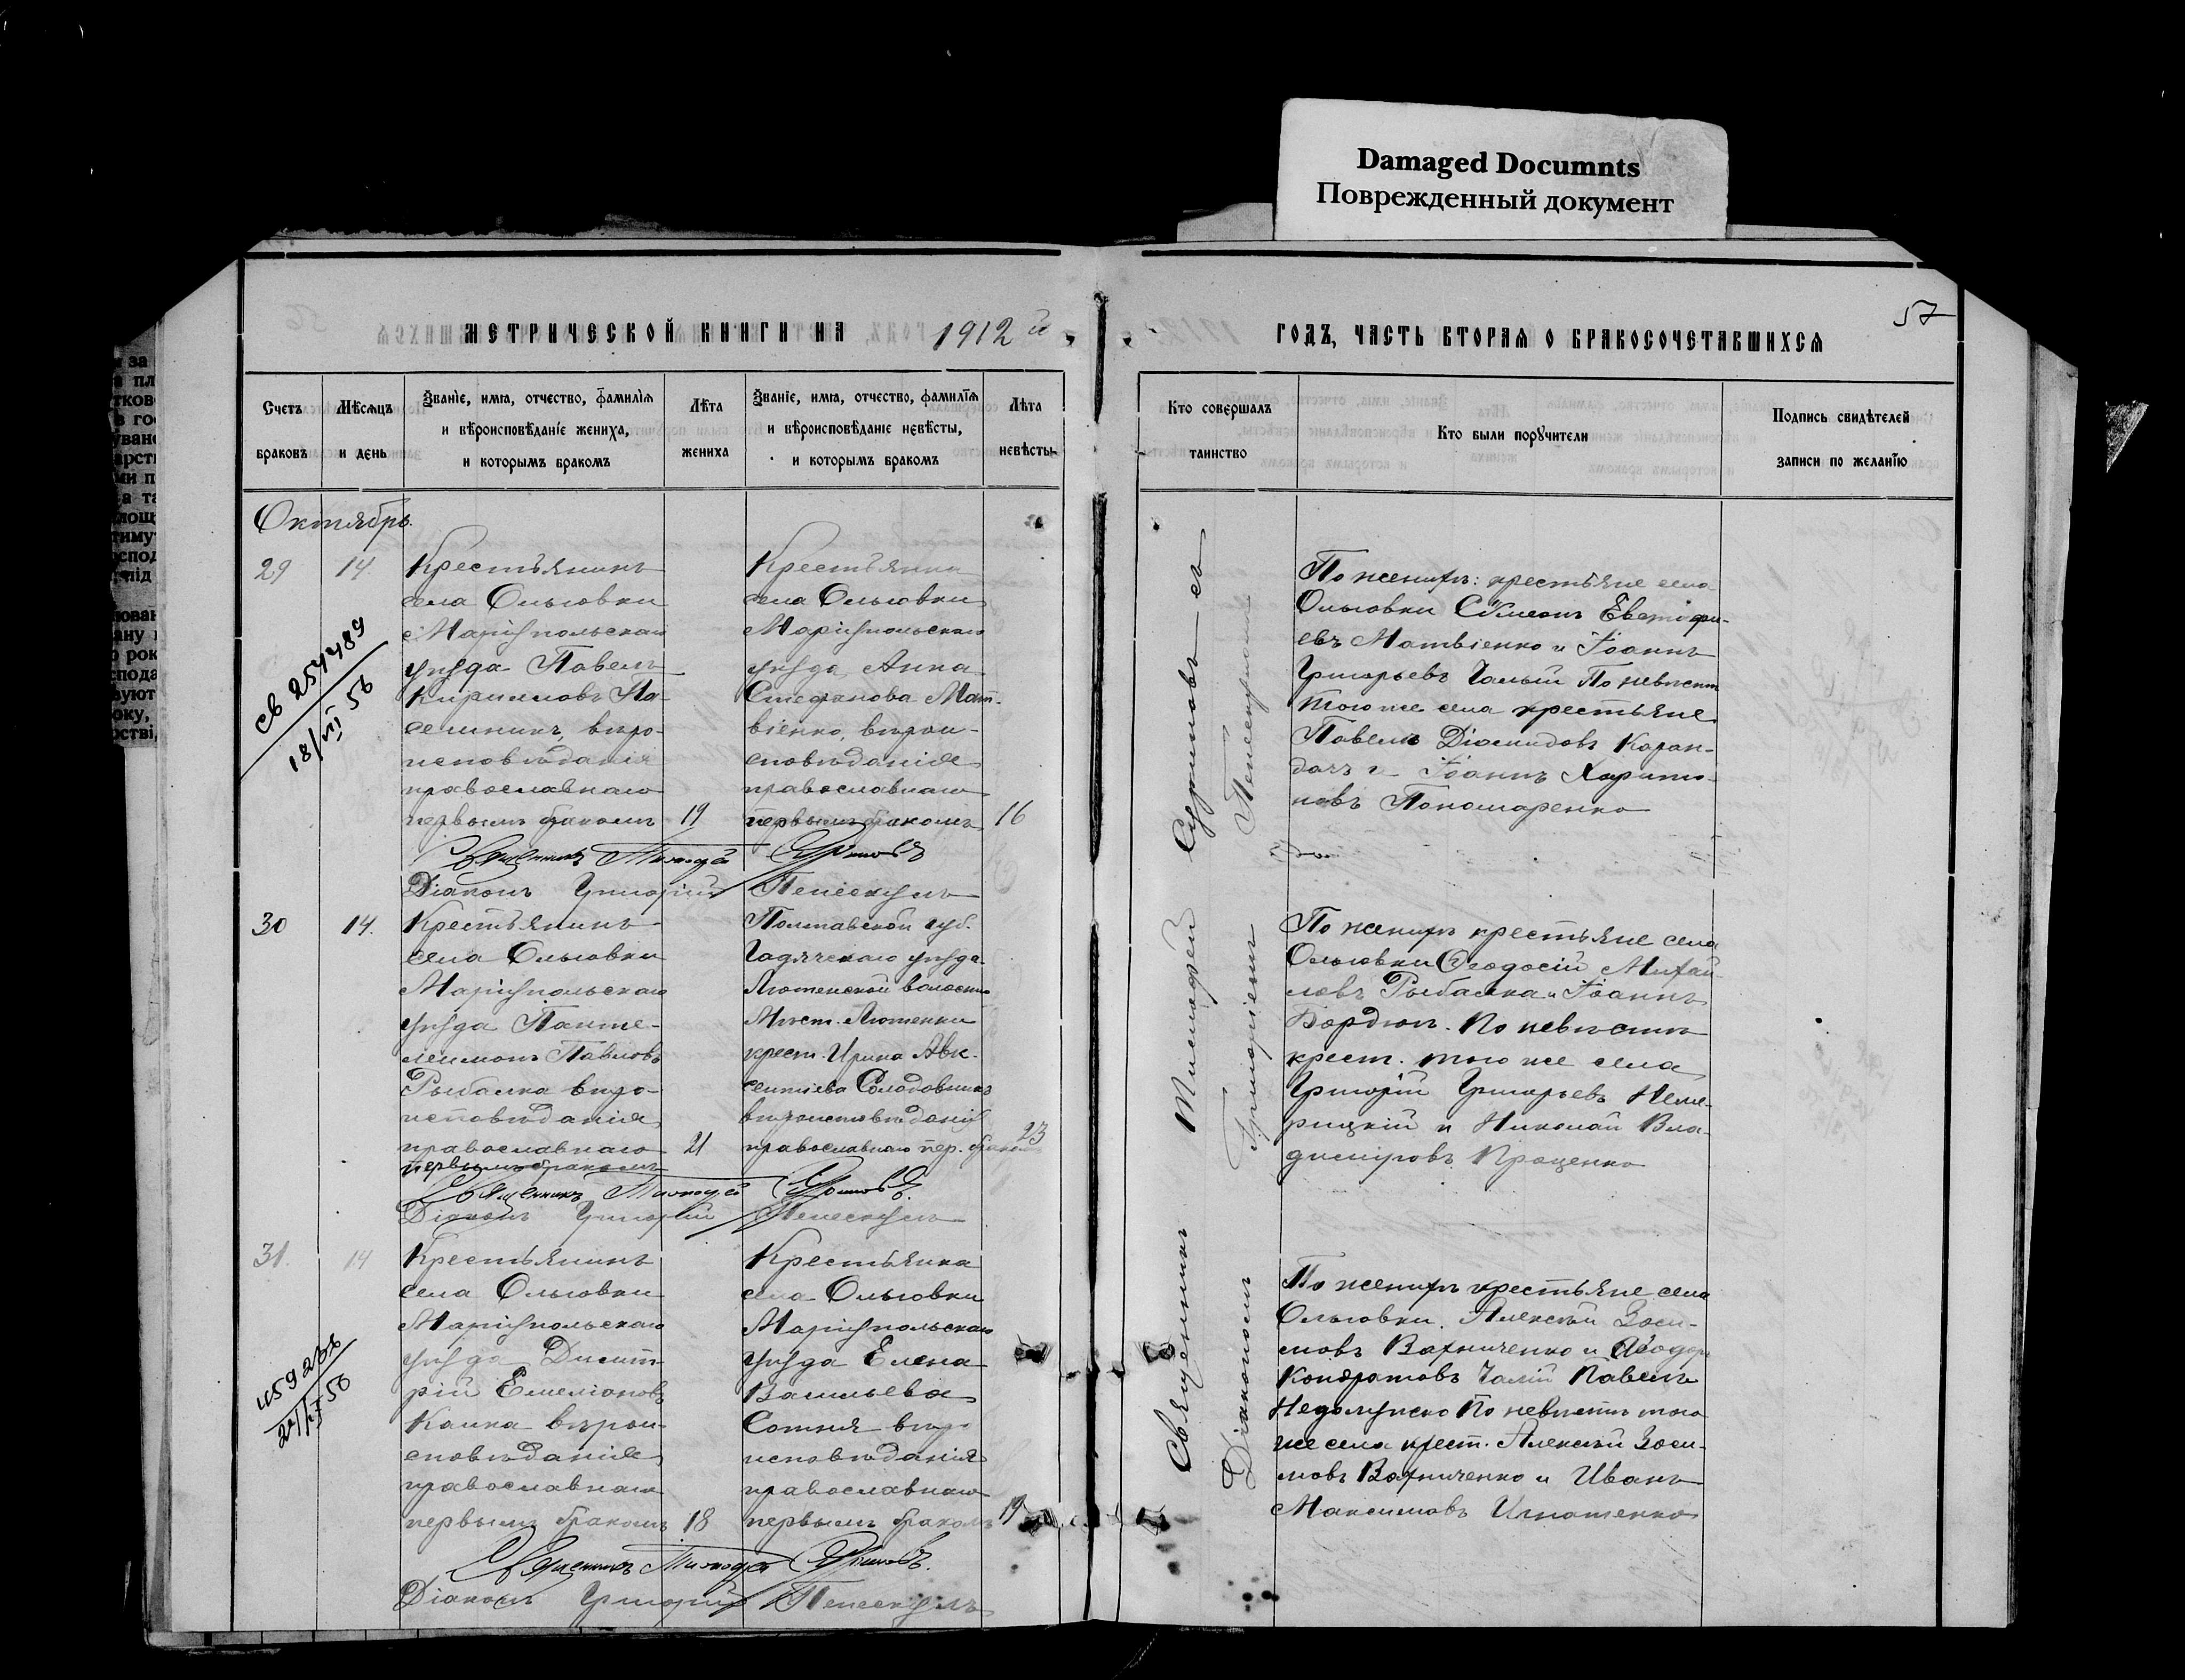 Damaged Documnts
Поврежденный документ
57
МЕТРИЧЕСКОЙ КНИГИ НА 1912 й
ГОДЪ, ЧАСТЬ ВТОРАЯ О БРАКОСОЧЕТАВШИХСЯ
Счетъ
браковъ
Мѣсяцъ
и день
Званіе, имя, отчество, фамилія
и вѣроисповѣданіе жениха,
и которымъ бракомъ
Лѣта
жениха
Званіе, имя, отчество, фамилія
и вѣроисповѣданіе невѣсты,
и которымъ бракомъ
Лѣта
невѣсты
Кто совершалъ
таинство
Кто были поручители
Подпись свидѣтелей
записи по желанію
Октябрь
29
14
св 254489
18/VII 56
Крестьянинъ
села Ольговки
Маріупольскаго
уѣзда Павелъ
Кирилловъ Па-
селникъ, вѣро-
исповѣданія
православнаго
первымъ бракомъ
19
Крестьянка
села Ольговки
Маріупольскаго
уѣзда Анна
Стефанова Мат-
віенко, вѣрои-
сповѣданія
православнаго
первымъ бракомъ
16
Священникъ Тимофей Суриновъ
Діаконъ Григорій Пелеспумъ
По женихѣ: крестьяне села
Ольговки Сѵмеонъ Евстафі-
евъ Матвіенко и Іоаннъ
Григорьевъ Чалый По невѣстѣ
того же села крестьяне
Павелъ Діомидовъ Каран-
дачъ и Іоаннъ Харито-
новъ Пономаренко
30
14.
Крестьянинъ
села Ольговки
Маріупольскаго
уѣзда Панте-
леимонъ Павловъ
Рыбалка вѣро-
исповѣданія
православнаго
первымъ бракомъ
21
Полтавской губ.
Гадячскаго уѣзда
Лютенской волости
Мѣст. Лютенки
крест. Ирина Авк-
сентіева Солодовникъ
вѣроисповѣданія
православнаго пер. бракомъ
23
Священникъ Тимофей Суриновъ
Діаконъ Григорій
По женихѣ крестьяне села
Ольговки Ѳеодосій Михай-
ловъ Рыбалка и Іоаннъ
Бордюгъ. По невѣстѣ
крест. того же села
Григорій Григорьевъ Неме-
рицкій и Николай Вла-
диміровъ Проценко
31.
14
459286
56
Крестьянинъ
села Ольговки
Маріупольскаго
уѣзда Димит-
рій Емеліановъ
Калка вѣрои-
сповѣданія
православнаго
первымъ бракомъ
18
Крестьянка
села Ольговки
Маріупольскаго
уѣзда Елена
Васильева
Сотня вѣро
исповѣданія
православнаго
первымъ бракомъ
19
Священникъ Тимофей Суриновъ.
Діаконъ Григорій
По женихѣ крестьяне села
Ольговки. Алексѣй Зоси-
мовъ Вахниченко и Ѳеодоръ
Кондратовъ Чалый Павелъ
По невѣстѣ того
же села крест. Алексѣй Зоси-
мовъ Вахниченко и Иванъ
Максимовъ Игнатенко
Священникъ Тимофей Суриновъ съ
Діакономъ Григоріемъ